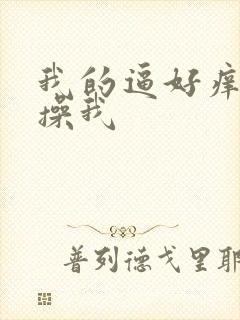 我的逼好痒
操我
普列德戈里耶